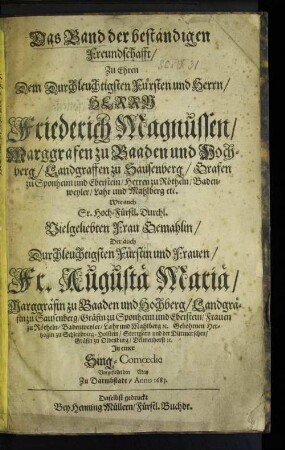 Das Band der beständigen
Freundschafft/
Zu Ehren
Dem Durchleuchtigsten Fürsten und Herrn/
HERRN
Friederich Magnussen/
Marggrafen zu Baaden und Hoch-
berg/Landgraffen zu Sausenberg/Grafen
zu Sponheim und Eberstein/Herren zu Röteln/Baden-
weyler/Lahr und Mahlberg etc.
Wie auch
Sr. Hoch-Fürstl. Durchl.
Vielgeliebten Frau Gemahlin/
Der auch
Durchleuchtigsten Fürstin und Frauen/
Fr. Augusta Maria/
Marggräfin zu Baaden und Hochberg/Landgrä-
fin zu Sausenberg/Gräfin zu Sponheim und Eberstein/Frauen
zu Röteln/Badenweyler/Lahr und Mahlberg etc. Gebohrnen Her-
tzogin zu Schleßwig-Holstein/Stormarn und der Ditmarschen/
Gräfin zu Oldenburg/Delmenhorst etc.
In einer
Sing-Comœdie
Vorgestellet
Zu Darmbstadt/Anno 1683.
Daselbst gedruckt
Bey Henning Müllern/Fürstl. Buchdr.